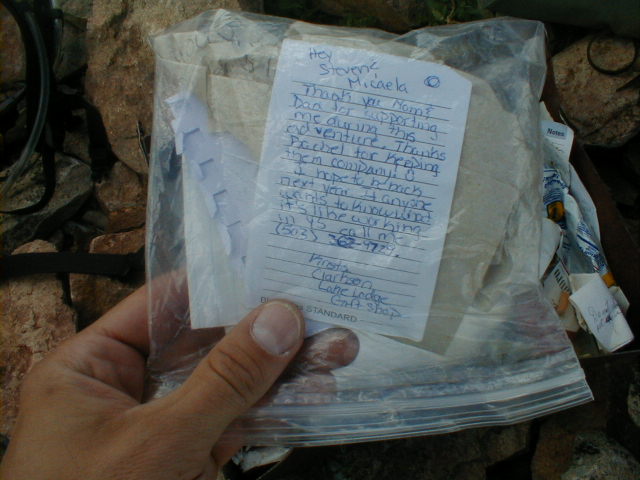 Hey
Steven &
Micaela
Thank you Mom &
Dad for supporting
me during this
adventure. Thanks
Rachel for keeping
them company! :)
I hope to be back
next year. If anyone
wants to know what
it's like working
in YS call me
(503) 362-9729.
Krista
Clarkson
Lake Lodge
Gift Shop
STANDARD
Notes